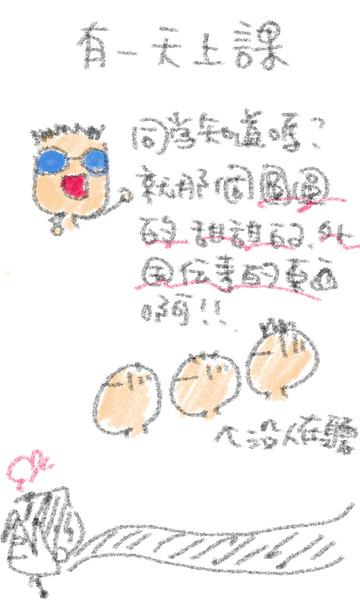 有一天上課
同學知道嗎?
就那個圓圓
的甜甜的.外
國任毒的東西
啊!!
ヘ沒人在聽